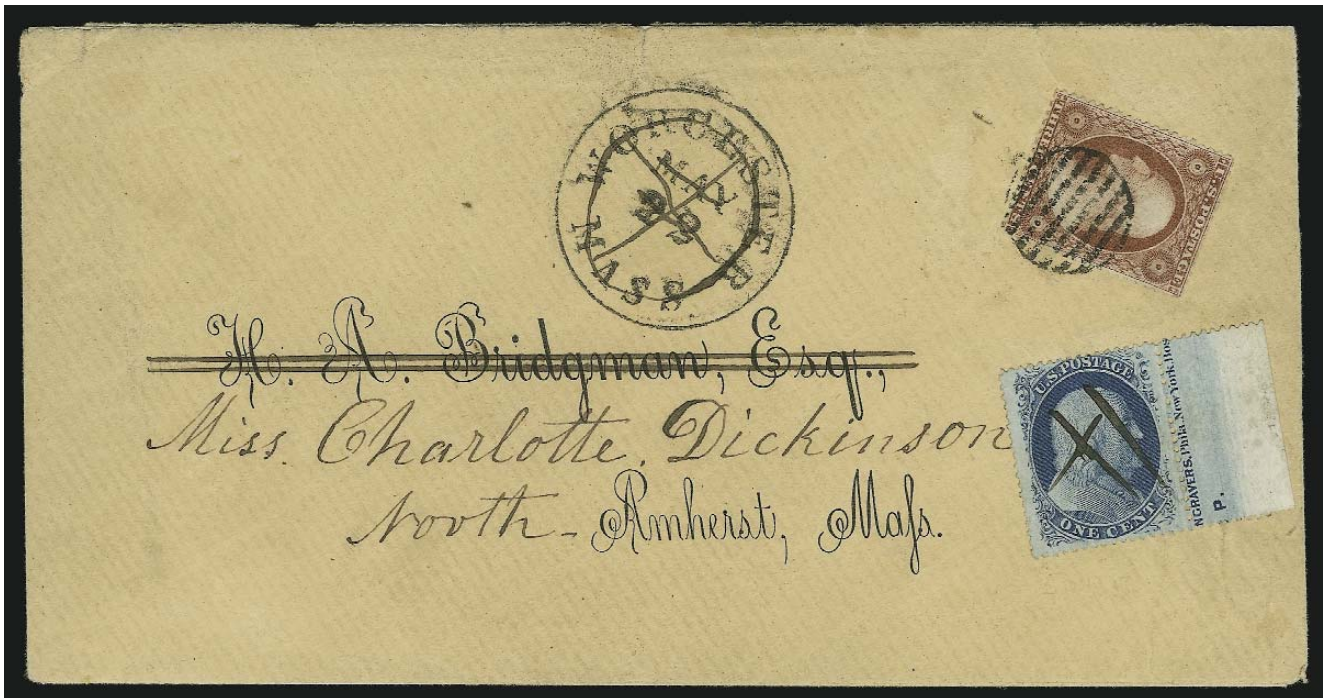 WORCESTER MASS
MAY
22
U.S. POSTAGE
H. A. Bridgman, Esq.,
Miss. Charlotte. Dickinson
North - Amherst, Maſs.
U.S. POSTAGE
ONE CENT
NGRAVERS. Phila. New York. Bos
P.